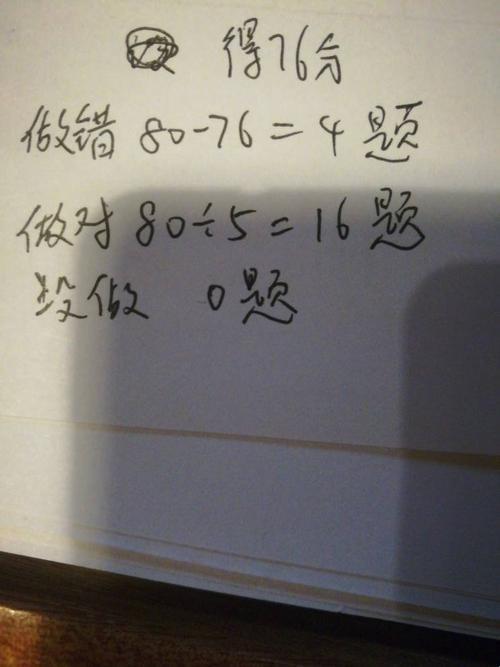 得76分
做错 80-76=4题
做对 80÷5=16题
没做 0题